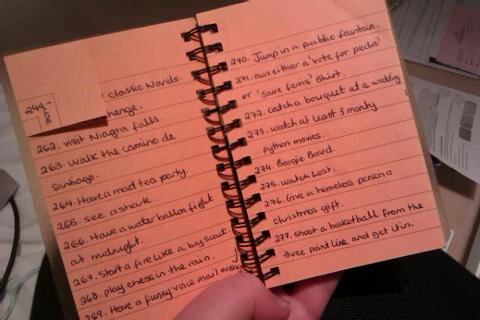 244-
classic Novels.
henge.
262. visit Niagra falls.
263. walk the camino de
santiago.
264. Have a mad tea party.
265. see a shark.
266. Have a water ballon fight
at midnight.
267. start a fire like a boy scout.
268. play chess in the rain.
269. Have a funny voice mail
270. Jump in a public fountain.
271. own either a 'vote for pedro'
or 'save ferris' shirt.
272. catch a bouquet at a wedding
273. watch at least 3 monty
python movies.
274. Boogie Board.
275. watch Lost.
276. Give a homeless person a
christmas gift.
277. shoot a basketball from the
three point line and get it in.